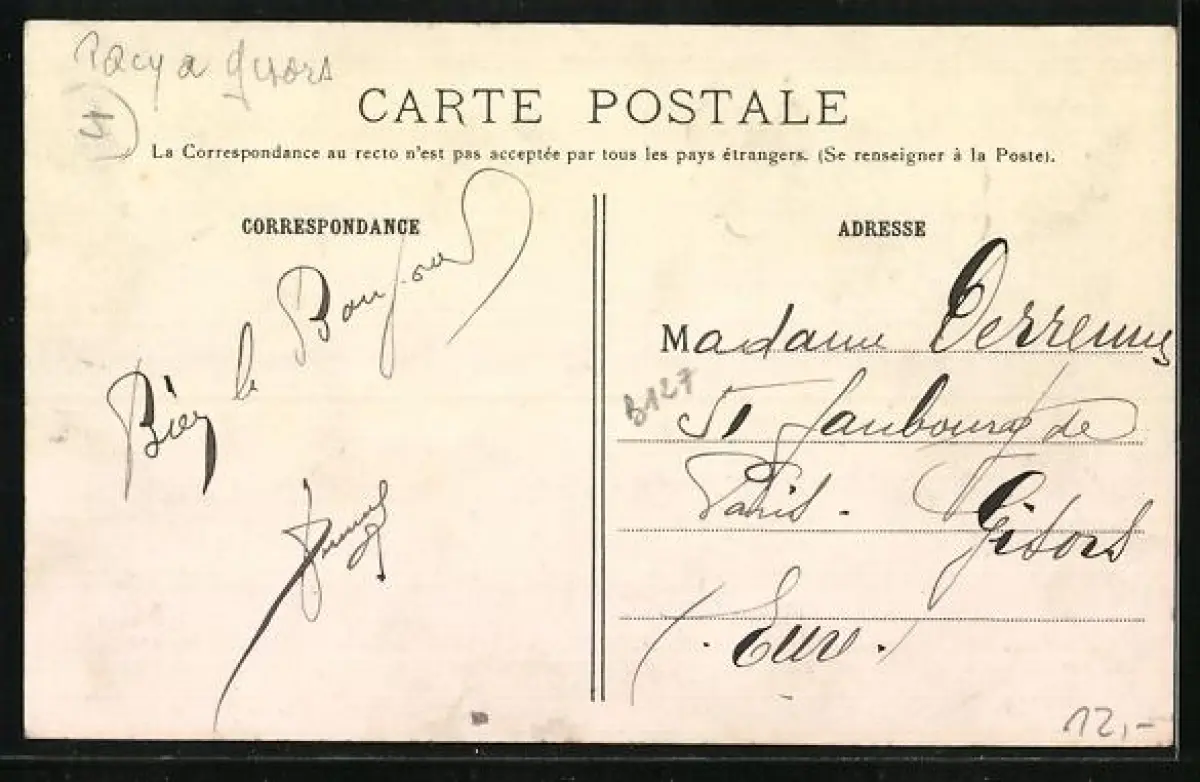 Pacy a Gisors
5
CARTE POSTALE
La Correspondance au recto n'est pas acceptée par tous les pays étrangers. (Se renseigner à la Poste).
CORRESPONDANCE
Bien le Bonjour
ADRESSE
Madame
B127
51 faubourg de
Paris. Gisors
(. Eure.)
12,-